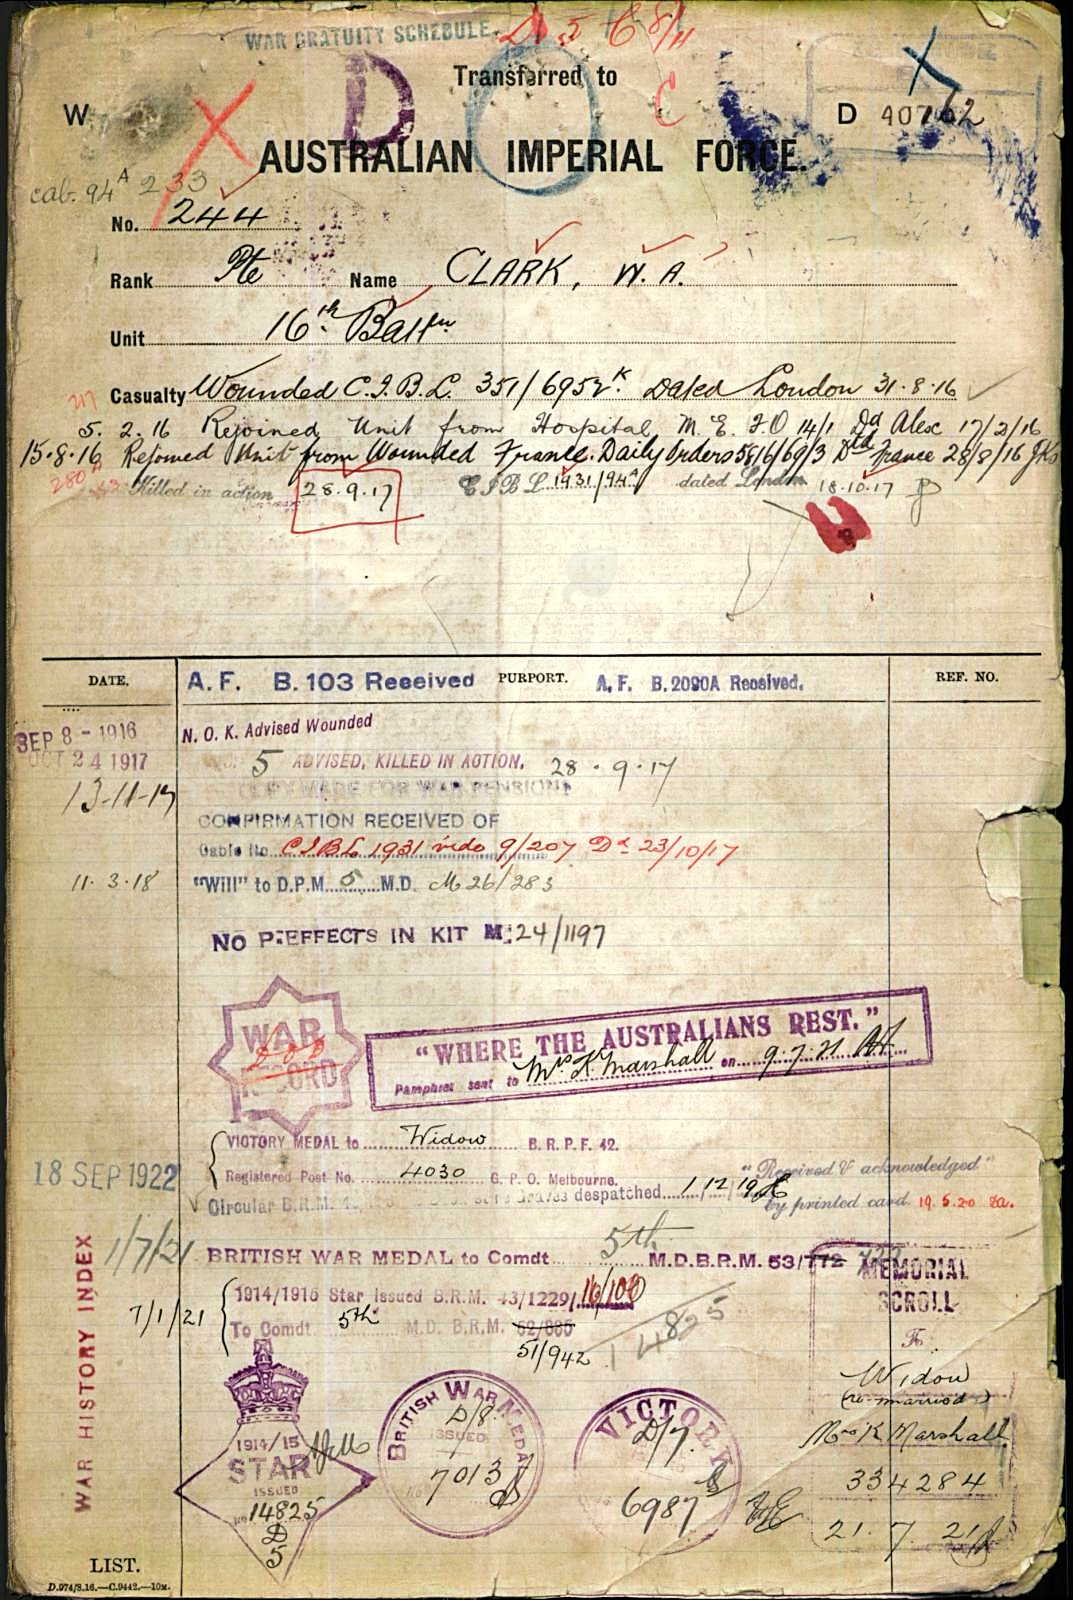 WAR GRATUITY SCHEDULE
Transferred to
W
D 40762
AUSTRALIAN IMPERIAL FORCE.
cab. 94A 233
No. 244
Rank Pte Name CLARK, W. A.
Unit 16th Battn
Casualty Wounded C.I.B.L. 351/695 2K Dated London 31.8.16
5. 2. 16 Rejoined Unit from Hospital M.E. I O 14/1 Dd Alex 17/2/16
15.8.16 Rejoined Unit from Wounded France. Daily Orders 58/6/69/3 Dtd France 28/8/16
Killed in action 28.9.17 C I B L 1931/94A dated London 18.10.17
DATE.
PURPORT.
REF. NO.
A. F. B. 103 Received
A. F. B. 2090A Received.
SEP 8 - 1916
N. O. K. Advised Wounded
OCT 24 1917
5 ADVISED, KILLED IN ACTION, 28.9.17
13-11-17
COPY MADE FOR WAR PENSIONS
CONFIRMATION RECEIVED OF
Cable No. CIBL 1931 vide 9/207 Dd 23/10/17
11.3.18
"Will" to D.P.M. 5 M.D. M 26/283
NO P. EFFECTS IN KIT M 24/1197
WAR
RECORD
"WHERE THE AUSTRALIANS REST."
Pamphlet sent to Mrs K Marshall on 9.7.21
VICTORY MEDAL to Widow B. R. P. F. 42.
18 SEP 1922
Registered Post No. 4030 G. P. O. Melbourne.
"Received & acknowledged"
Circular B.R.M. despatched 1/12/19
by printed card. 19.5.20
1/7/21
BRITISH WAR MEDAL to Comdt 5th M.D. B.R.M. 53/772
1914/1915 Star issued B.R.M. 43/1229/ 16/100
7/1/21
To Comdt 5th M.D. B.R.M. 52/885
51/942
14825
MEMORIAL
SCROLL
To
Widow
(re-married)
Mrs K Marshall
334284
21. 7. 21
1914/15
STAR
ISSUED
No 14825
D
5
BRITISH WAR MEDAL
D/8.
ISSUED
No 7013
VICTORY
D/7.
6987
WAR HISTORY INDEX
LIST.
D.974/8.16.—C.9442.—10m.